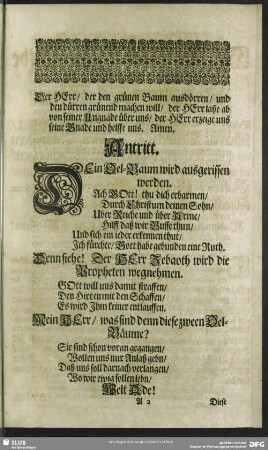 Der HErr/ der den grünen Baum ausdörren/ und
den dürren grünend machen will/ der HErr lasse ab
von seiner Ungnade über uns/ der HErr erzeige uns
seine Gnade und helffe uns. Amen.
Antritt.
Ein Oel-Baum wird ausgerissen
werden.
Ach GOtt! thu dich erbarmen/
Durch Christum deinen Sohn/
Uber Reiche und über Arme/
Hilff daß wir Busse thun/
Und sich ein ieder erkennen thut/
Ich fürchte/ Gott habe gebunden eine Ruth.
Denn siehe! Der HErr Zebaoth wird die
Propheten wegnehmen.
GOtt will uns damit straffen/
Den Hirten mit den Schaffen/
Es wird Ihm keiner entlauffen.
Mein HErr/ was sind denn diese zween Oel-
Bäume?
Sie sind schon voran gegangen/
Wollen uns nur Anlaß gebn/
Daß uns soll darnach verlangen/
Wo wir ewig sollen lebn/
Welt Ade!
A 2
Diese
SLUB
DFG